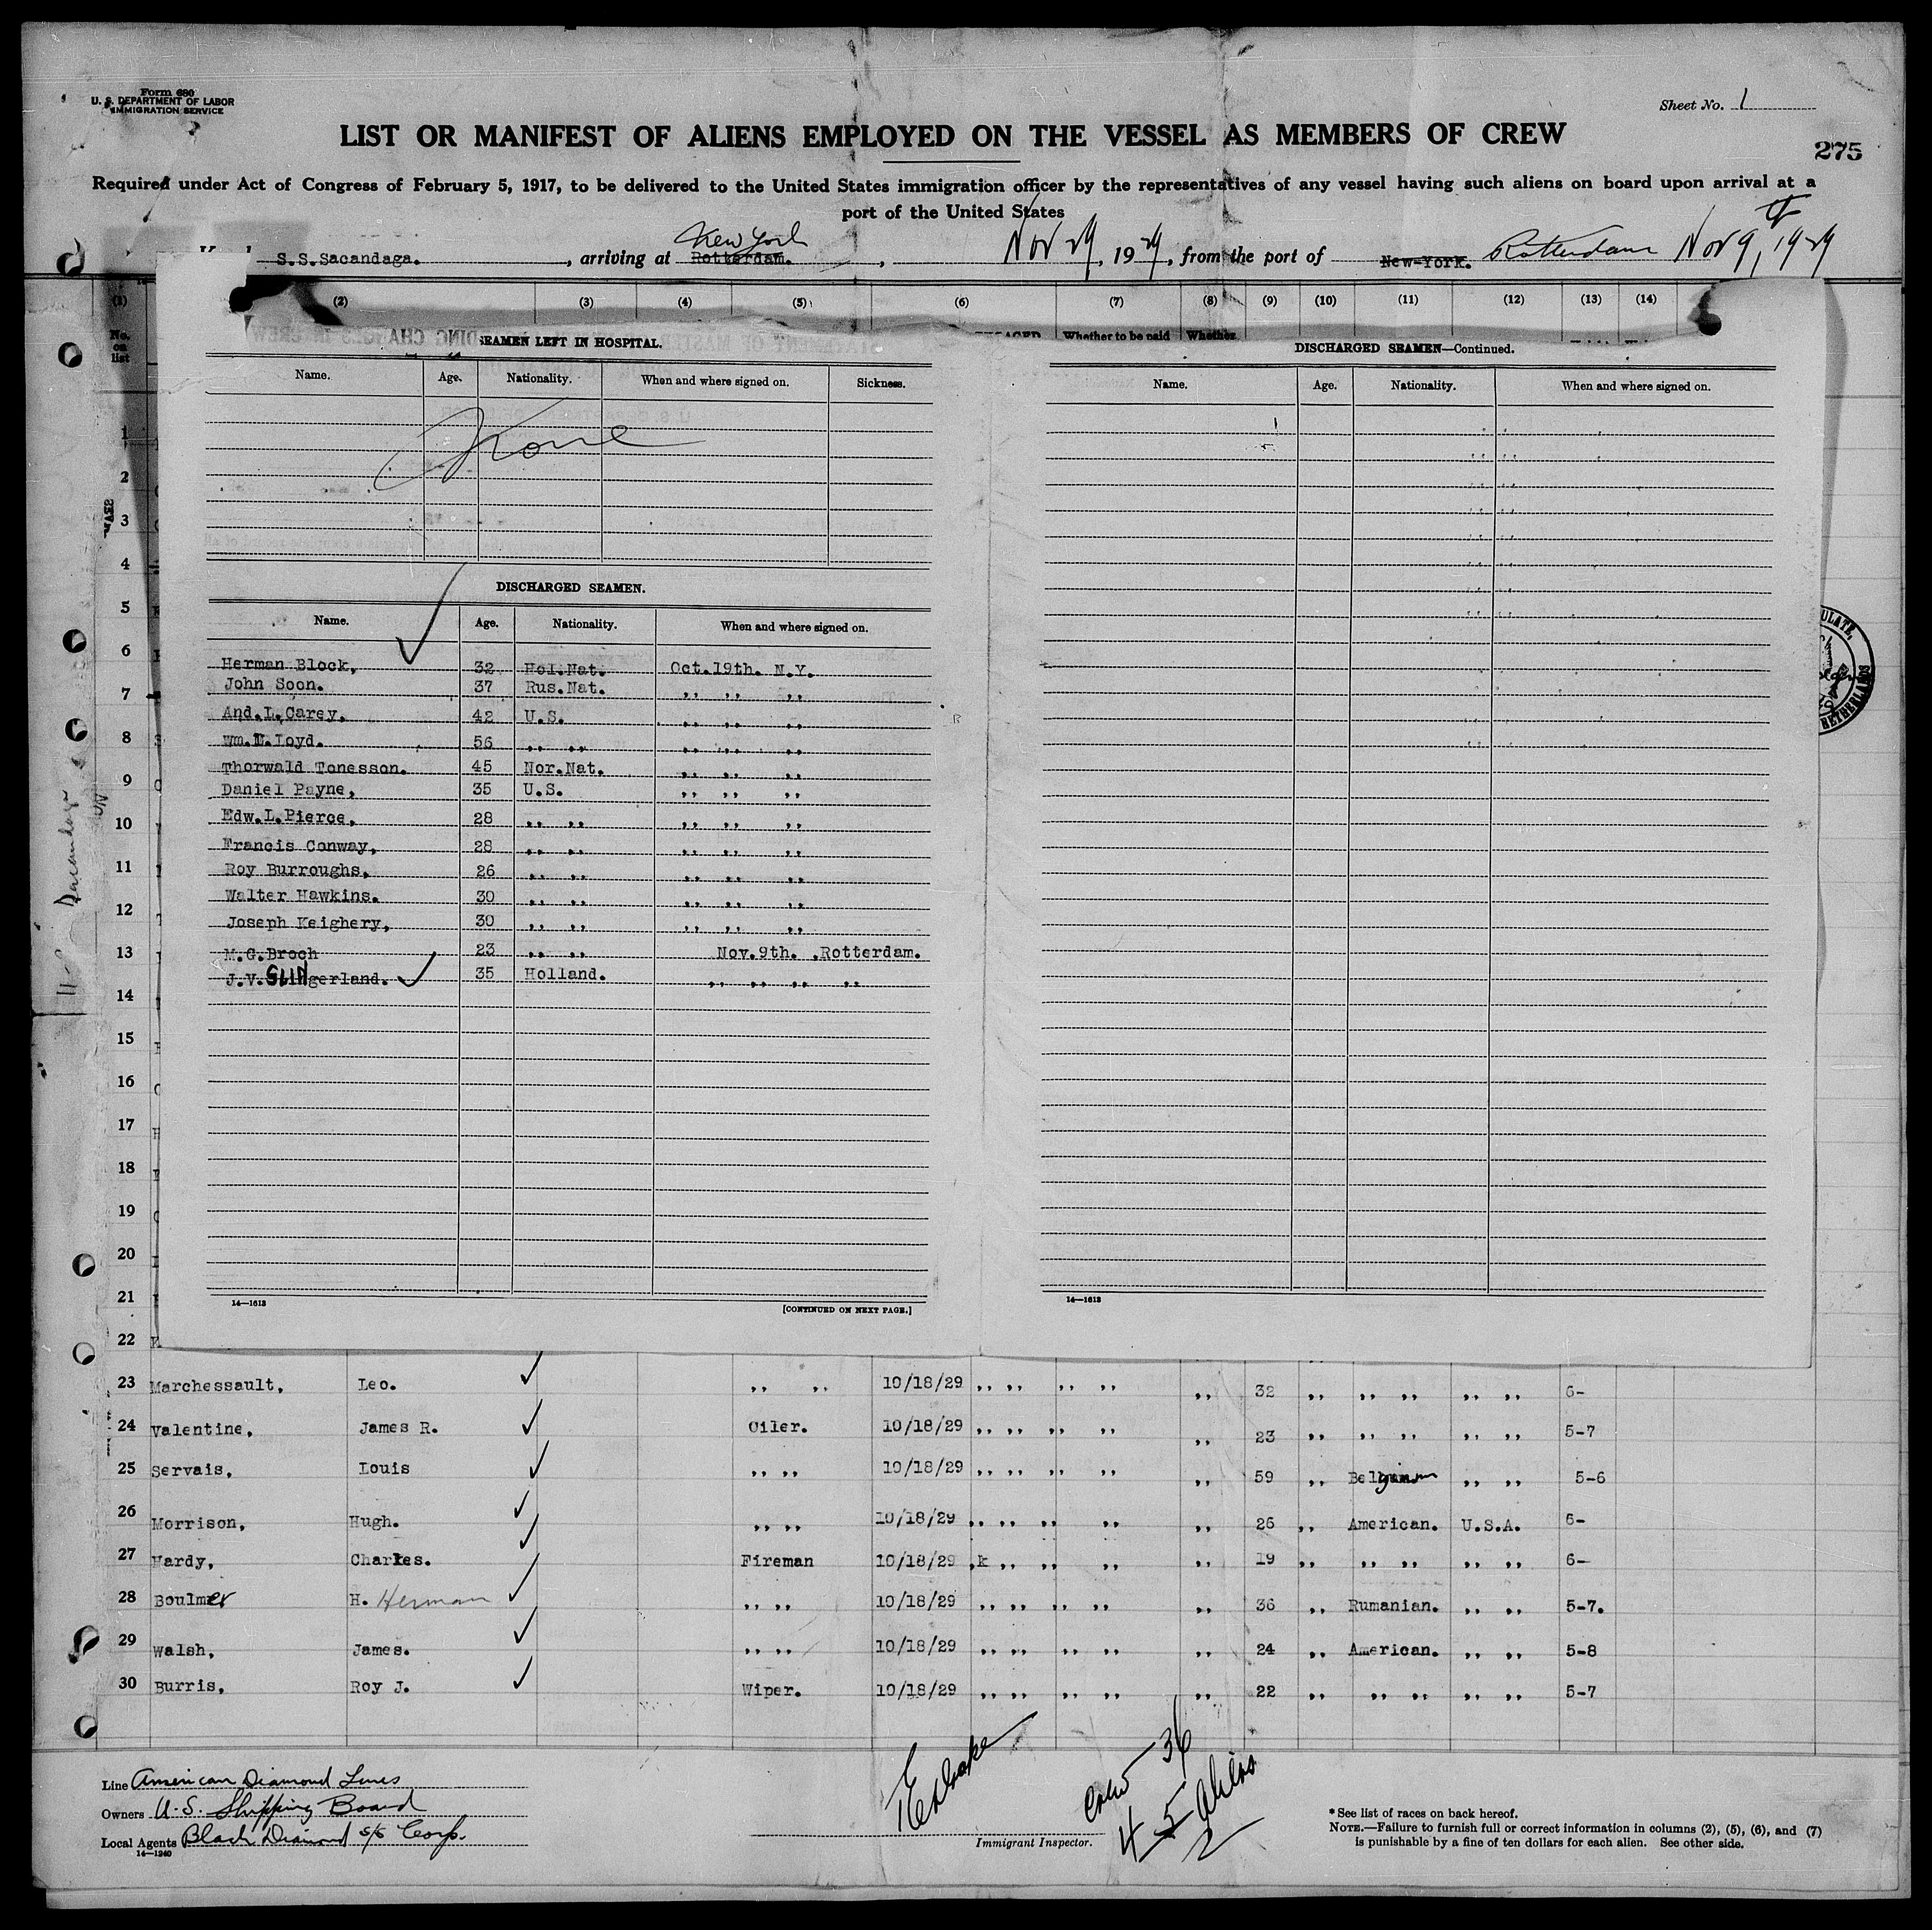 Form 680
U. S. DEPARTMENT OF LABOR
IMMIGRATION SERVICE
Sheet No. 1
LIST OR MANIFEST OF ALIENS EMPLOYED ON THE VESSEL AS MEMBERS OF CREW
275
Required under Act of Congress of February 5, 1917, to be delivered to the United States immigration officer by the representatives of any vessel having such aliens on board upon arrival at a
port of the United States
S.S.Sacandaga. , arriving at Rotterdam. New York , Nov 29, 1929, from the port of New-York. Rotterdam Nov 9, 1929
(1) (2) (3) (4) (5) (6) (7) (8) (9) (10) (11) (12) (13) (14)
No. on list
Whether to be paid Whether
SEAMEN LEFT IN HOSPITAL.
Name. Age. Nationality. When and where signed on. Sickness.
None
DISCHARGED SEAMEN.
Name. Age. Nationality. When and where signed on.
Herman Block, 32 Hol.Nat. Oct.19th. N.Y.
John Soon. 37 Rus.Nat. ,, ,, ,,
And.L.Carey. 42 U.S. ,, ,, ,,
Wm. Loyd. 56 ,, ,, ,, ,, ,,
Thorwald Tonesson. 45 Nor.Nat. ,, ,, ,,
Daniel Payne, 35 U.S. ,, ,, ,,
Edw.L.Pierce, 28 ,, ,, ,, ,, ,,
Francis Conway, 28 ,, ,, ,, ,, ,,
Roy Burroughs, 26 ,, ,, ,, ,, ,,
Walter Hawkins. 30 ,, ,, ,, ,, ,,
Joseph Keighery, 30 ,, ,, ,, ,, ,,
M.G.Broch 23 ,, ,, Nov.9th. ,Rotterdam.
J.V.SLINgerland. 35 Holland. ,, ,, ,, ,,
14—1613
[CONTINUED ON NEXT PAGE.]
DISCHARGED SEAMEN—Continued.
Name. Age. Nationality. When and where signed on.
14—1613
1
2
3
4
5
6
7
8
9
10
11
12
13
14
15
16
17
18
19
20
21
22
23 Marchessault, Leo. ,, ,, 10/18/29 ,, ,, ,, ,, ,, 32 ,, ,, ,, ,, ,, 6-
24 Valentine, James R. Oiler. 10/18/29 ,, ,, ,, ,, ,, 23 ,, ,, ,, ,, ,, 5-7
25 Servais, Louis ,, ,, 10/18/29 ,, ,, ,, ,, ,, 59 ,, Belgium ,, ,, 5-6
26 Morrison, Hugh. ,, ,, 10/18/29 ,, ,, ,, ,, ,, 26 ,, American. U.S.A. 6-
27 Hardy, Charles. Fireman 10/18/29 ,k ,, ,, ,, ,, 19 ,, ,, ,, ,, ,, 6-
28 Boulmer H. Herman ,, ,, 10/18/29 ,, ,, ,, ,, ,, 36 ,, Rumanian. ,, ,, 5-7.
29 Walsh, James. ,, ,, 10/18/29 ,, ,, ,, ,, ,, 24 ,, American. ,, ,, 5-8
30 Burris, Roy J. Wiper. 10/18/29 ,, ,, ,, ,, ,, 22 ,, ,, ,, ,, ,, 5-7
Line American Diamond Lines
Owners U.S. Shipping Board
Local Agents Black Diamond S/S Corp.
14—1240
Immigrant Inspector.
Crew 36
4 5 Aliens
2
* See list of races on back hereof.
NOTE.—Failure to furnish full or correct information in columns (2), (5), (6), and (7)
is punishable by a fine of ten dollars for each alien. See other side.